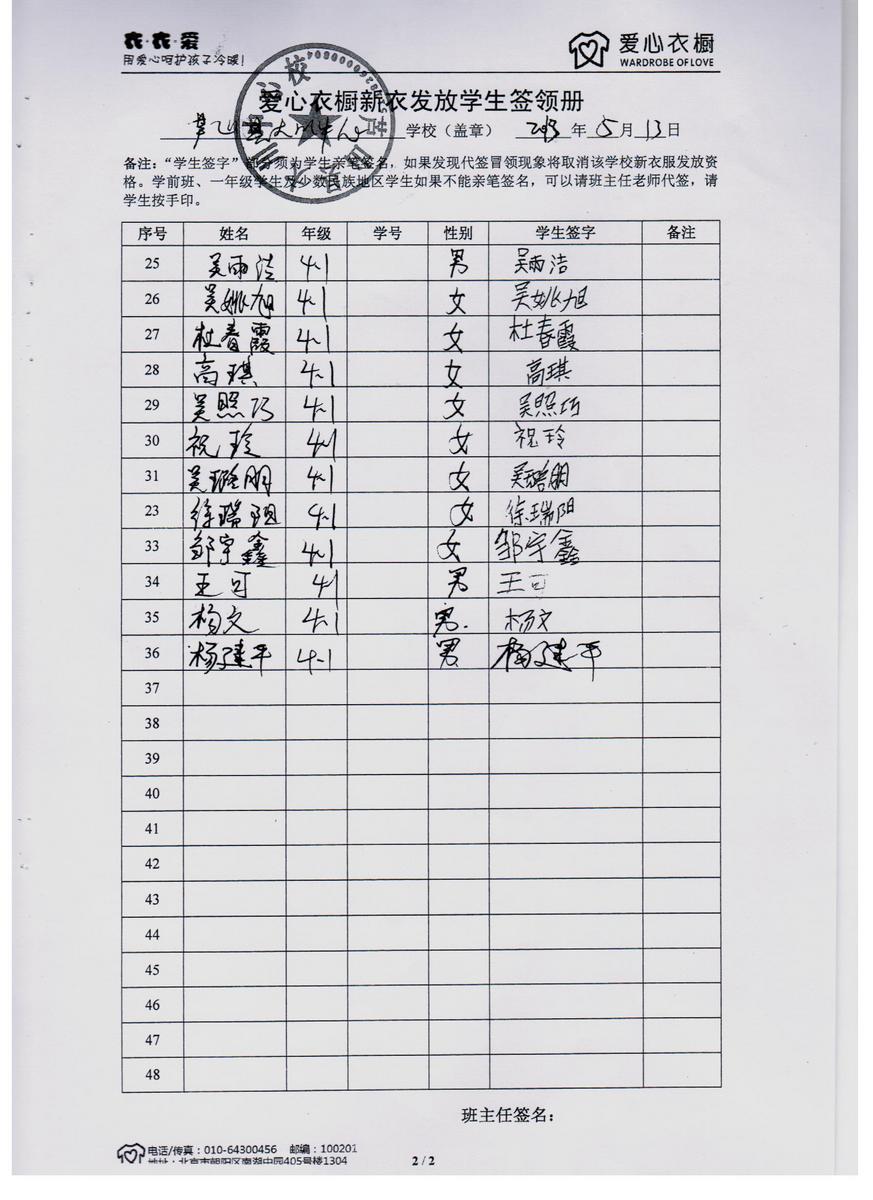 衣·衣·爱
用爱心呵护孩子冷暖!
爱心衣橱
WARDROBE OF LOVE
爱心衣橱新衣发放学生签领册
学校（盖章） 2013 年 5 月 13 日
备注：“学生签字”部分须为学生亲笔签名，如果发现代签冒领现象将取消该学校新衣服发放资
格。学前班、一年级学生及少数民族地区学生如果不能亲笔签名，可以请班主任老师代签，请
学生按手印。
序号 姓名 年级 学号 性别 学生签字 备注
25 吴雨洁 4-1 男 吴雨洁
26 吴姚旭 4-1 女 吴姚旭
27 杜春霞 4-1 女 杜春霞
28 高琪 4-1 女 高琪
29 吴照巧 4-1 女 吴照巧
30 祝玲 4-1 女 祝玲
31 吴璐朋 4-1 女 吴璐朋
23 徐瑞阳 4-1 女 徐瑞阳
33 邹宇鑫 4-1 女 邹宇鑫
34 王可 4-1 男 王可
35 杨文 4-1 男. 杨文
36 杨建平 4-1 男 杨建平
37
38
39
40
41
42
43
44
45
46
47
48
班主任签名：
电话/传真：010-64300456 邮编：100201
地址：北京市朝阳区南湖中园405号楼1304
2 / 2